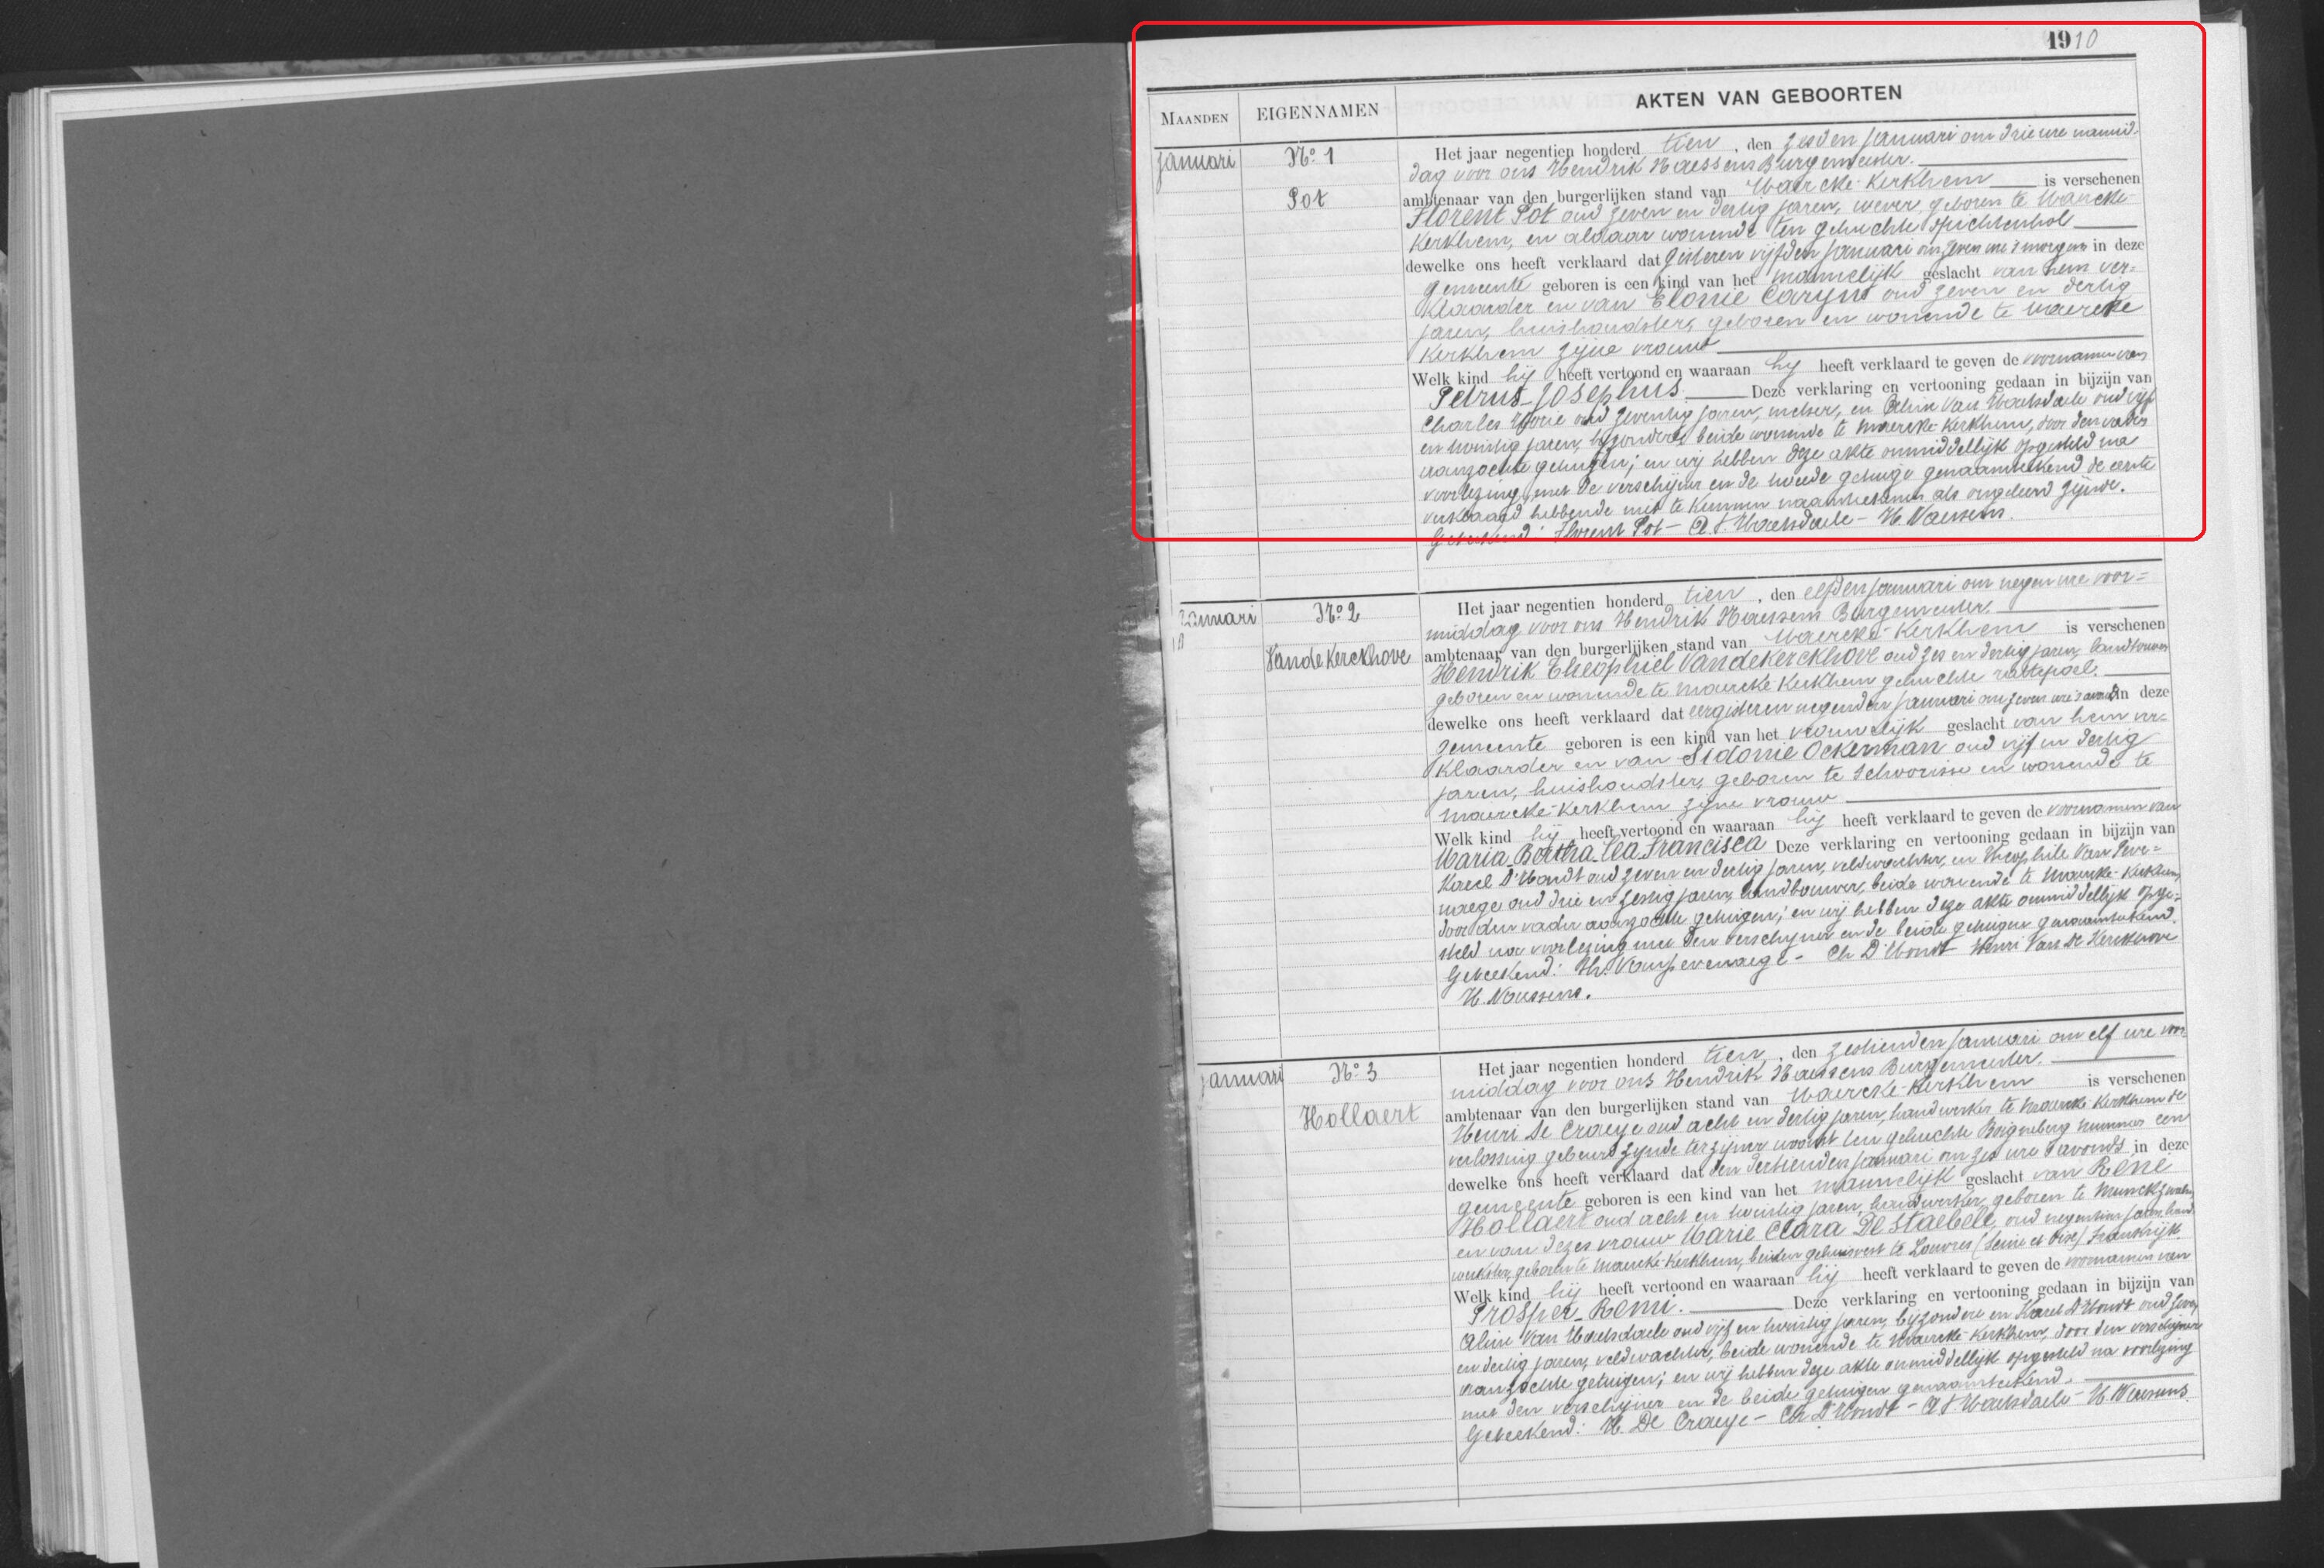 1910
MAANDEN EIGENNAMEN AKTEN VAN GEBOORTEN
Januari
Nº 1
Pot
Het jaar negentien honderd tien, den zesden Januari om drie ure namid-
dag voor ons Hendrik Naessens Burgemeester.
ambtenaar van den burgerlijken stand van Maercke-Kerkhem is verschenen
Florent Pot oud zeven en dertig jaren, wever, geboren te Maercke-
Kerkhem, en aldaar wonende ten gehuchte Spichtenhol
dewelke ons heeft verklaard dat gisteren vijfden Januari om zeven ure 's morgens in deze
gemeente geboren is een kind van het mannelijk geslacht van hem ver=
klaarder en van Elonie Caryns oud zeven en dertig
jaren, huishoudster, geboren en wonende te Maercke
Kerkhem zijne vrouw
Welk kind hij heeft vertoond en waaraan hij heeft verklaard te geven de voornamen van
Petrus-Josephus. Deze verklaring en vertooning gedaan in bijzijn van
Charles oud zeventig jaren, metser, en Aline Van Maelsdaele oud vijf
en twintig jaren, bijzondere, beide wonende te Maercke-Kerkhem, door den vader
aanzochte getuigen; en wij hebben deze akte onmiddellijk opgesteld na
voorlezing met de verschijner en de tweede getuige genaamteekend de eerste
verklaard hebbende niet te kunnen naamteekenen als ongeleerd zijnde.
Geteekend: Florent Pot - A. V. Maelsdaele - H. Naessens.
Januari
10
Nº 2
Vande Kerckhove
Het jaar negentien honderd tien, den elfden Januari om negen ure voor=
middag voor ons Hendrik Naessens Burgemeester.
ambtenaar van den burgerlijken stand van Maercke-Kerkhem is verschenen
Hendrik Theophiel Vandekerckhove oud zes en dertig jaren, landbouwer
geboren en wonende te Maercke Kerkhem gehuchte rattepoel.
dewelke ons heeft verklaard dat eergisteren negenden Januari om zeven ure 's avonds in deze
gemeente geboren is een kind van het vrouwelijk geslacht van hem ver=
klaarder en van Sidonie Ockerman oud vijf en dertig
jaren, huishoudster, geboren te Schoorisse en wonende te
Maercke-Kerkhem zijne vrouw
Welk kind hij heeft vertoond en waaraan hij heeft verklaard te geven de voornamen van
Maria-Bertha-Lea-Francisca Deze verklaring en vertooning gedaan in bijzijn van
Karel D'Hondt oud zeven en dertig jaren, veldwachter, en Theophile Van Peve=
naege oud drie en zestig jaren, landbouwer, beide wonende te Maercke-Kerkhem,
door den vader aanzochte getuigen; en wij hebben deze akte onmiddellijk opge=
steld na voorlezing met den verschijner en de beide getuigen genaamteekend.
Geteekend: Th. Vanpevenaege - Ch D'Hondt Henri Van De Kerckhove
H. Naessens.
Januari
Nº 3
Hollaert
Het jaar negentien honderd tien, den zestienden Januari om elf ure voor-
middag voor ons Hendrik Naessens Burgemeester.
ambtenaar van den burgerlijken stand van Maercke-Kerkhem is verschenen
Henri De Craeye oud acht en dertig jaren, handwerker te Maercke Kerkhem de
verlossing gebeurd zynde ter zijner woonst ten gehuchte nummer een
dewelke ons heeft verklaard dat den dertienden Januari om zes ure 's avonds in deze
gemeente geboren is een kind van het mannelijk geslacht van René
Hollaert oud acht en twintig jaren, handwerker, geboren te Munckzwalm,
en van dezes vrouw Marie Clara De Staebele, oud negentien jaren, hand-
werkster, geboren te Maercke-Kerkhem, beiden gehuisvest te Louvres (Seine et Oise) Frankrijk.
Welk kind hij heeft vertoond en waaraan hij heeft verklaard te geven de voornamen van
Prosper-Remi. Deze verklaring en vertooning gedaan in bijzijn van
Aline Van Maelsdaele oud vijf en twintig jaren, bijzondere en Karel D'Hondt oud zeven
en dertig jaren, veldwachter, beide wonende te Maercke-Kerkhem, door den verschijner
aanzochte getuigen; en wij hebben deze akte onmiddellijk opgesteld na voorlezing
met den verschijner en de beide getuigen genaamteekend.
Geteekend: H. De Craeye - Ch D'Hondt - A V Maelsdaele - H. Naessens.